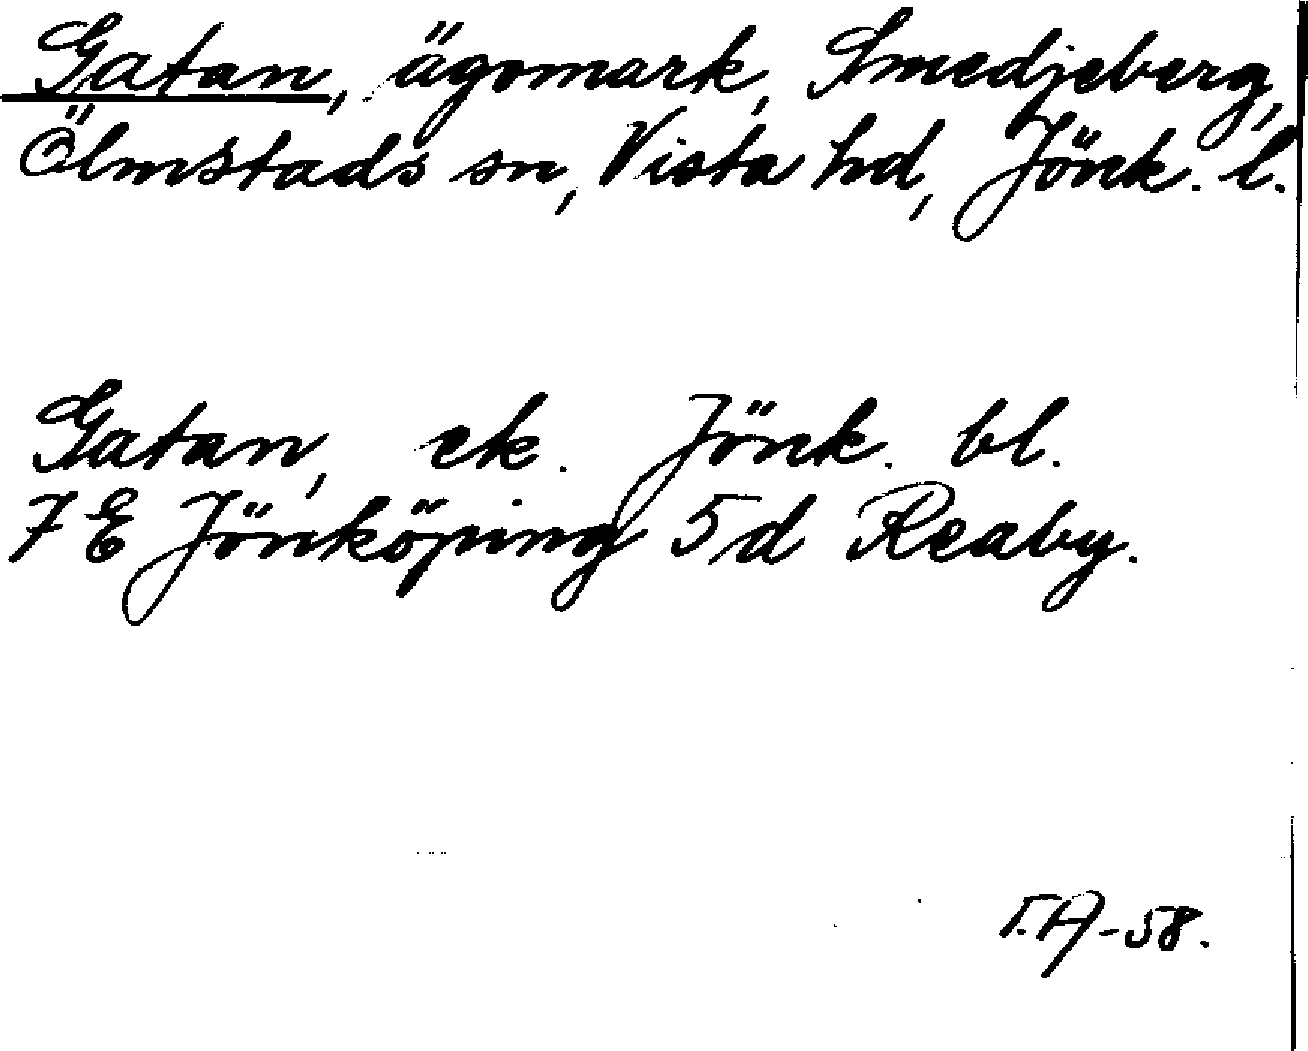 Gatan, ägomark, Smedjeberg,
Ölmstads sn, Vista hd, Jönk. l.
Gatan, ek. Jönk. bl.
7 E Jönköping 5d Reaby.
T.A-58.